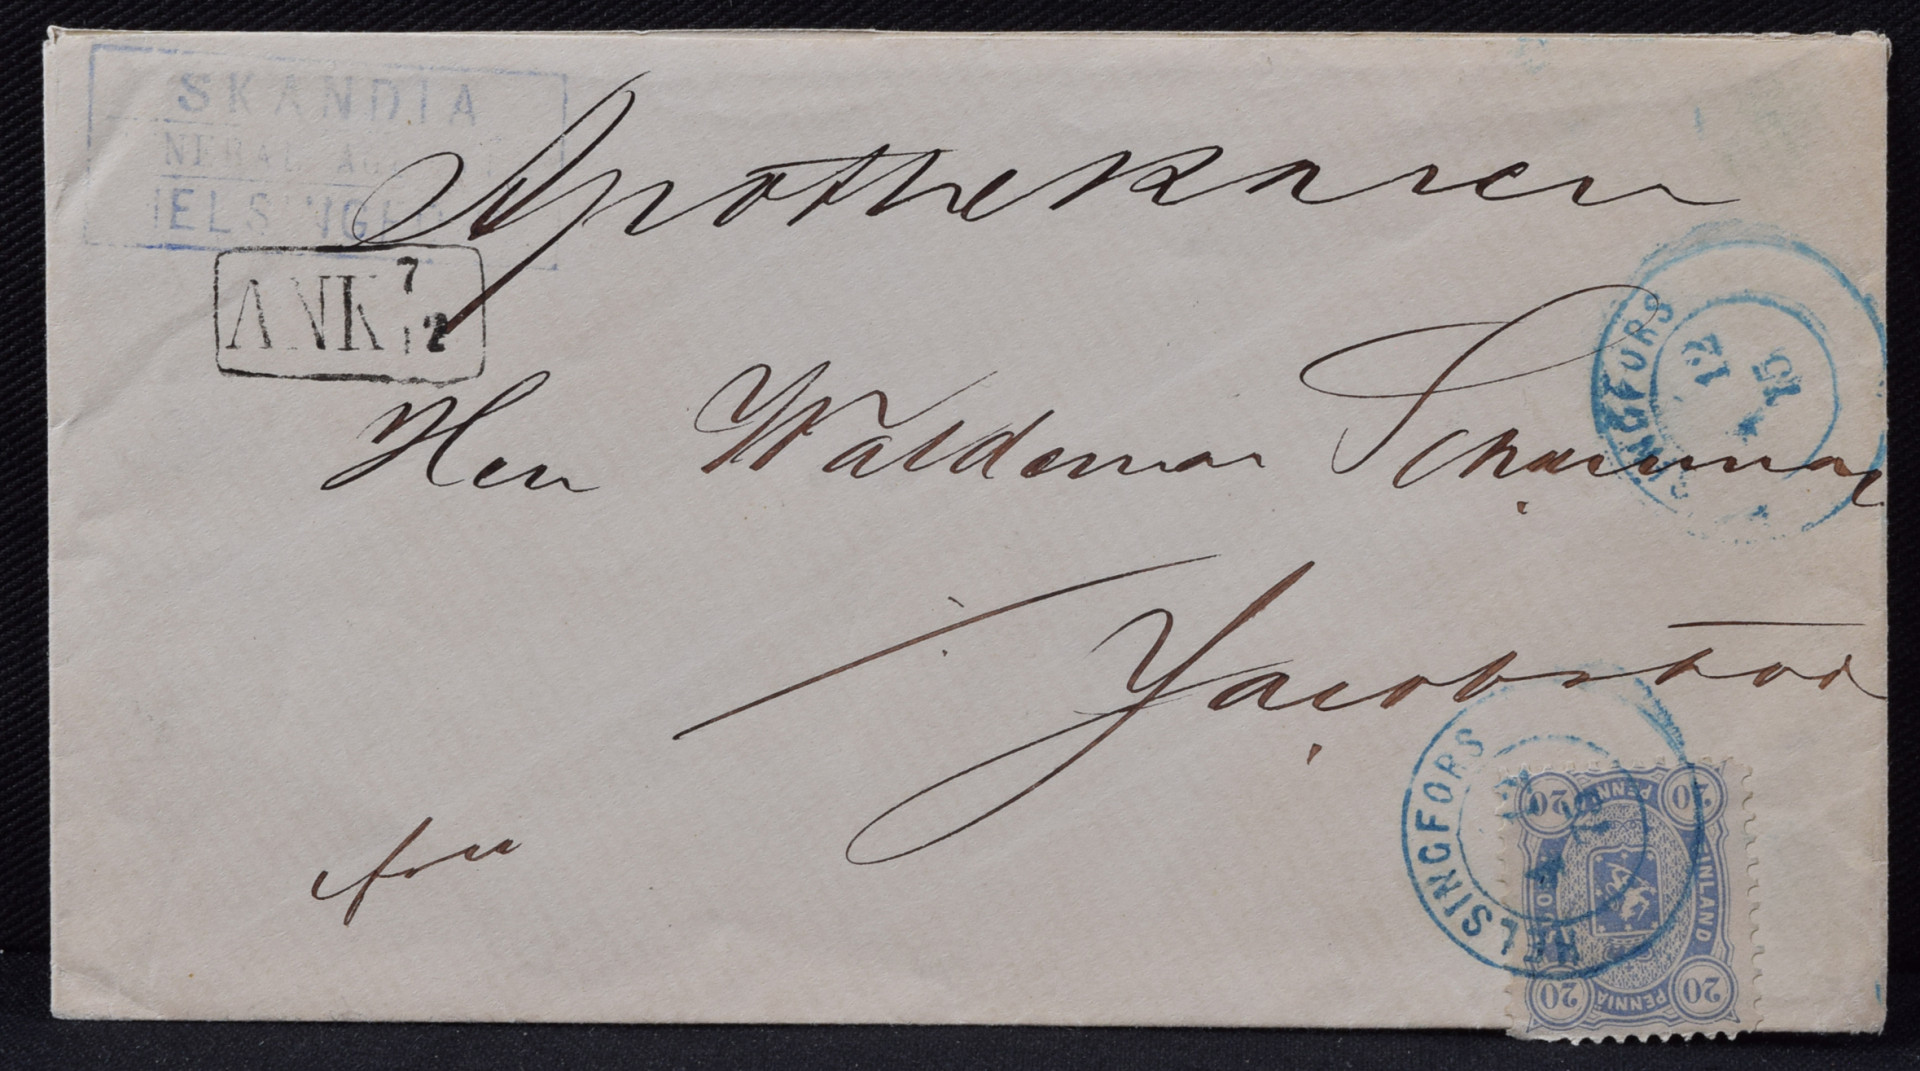 SKANDIA
NERAL AGENT
ELSINGFO
ANK 7
12
Apothekaren
Herr Waldemar Schauman
Jacobstad
fr
HELSINGFORS
12
15
HELSINGFORS
20 PENNIÄ 20
FINLAND
20 PENNIA 20